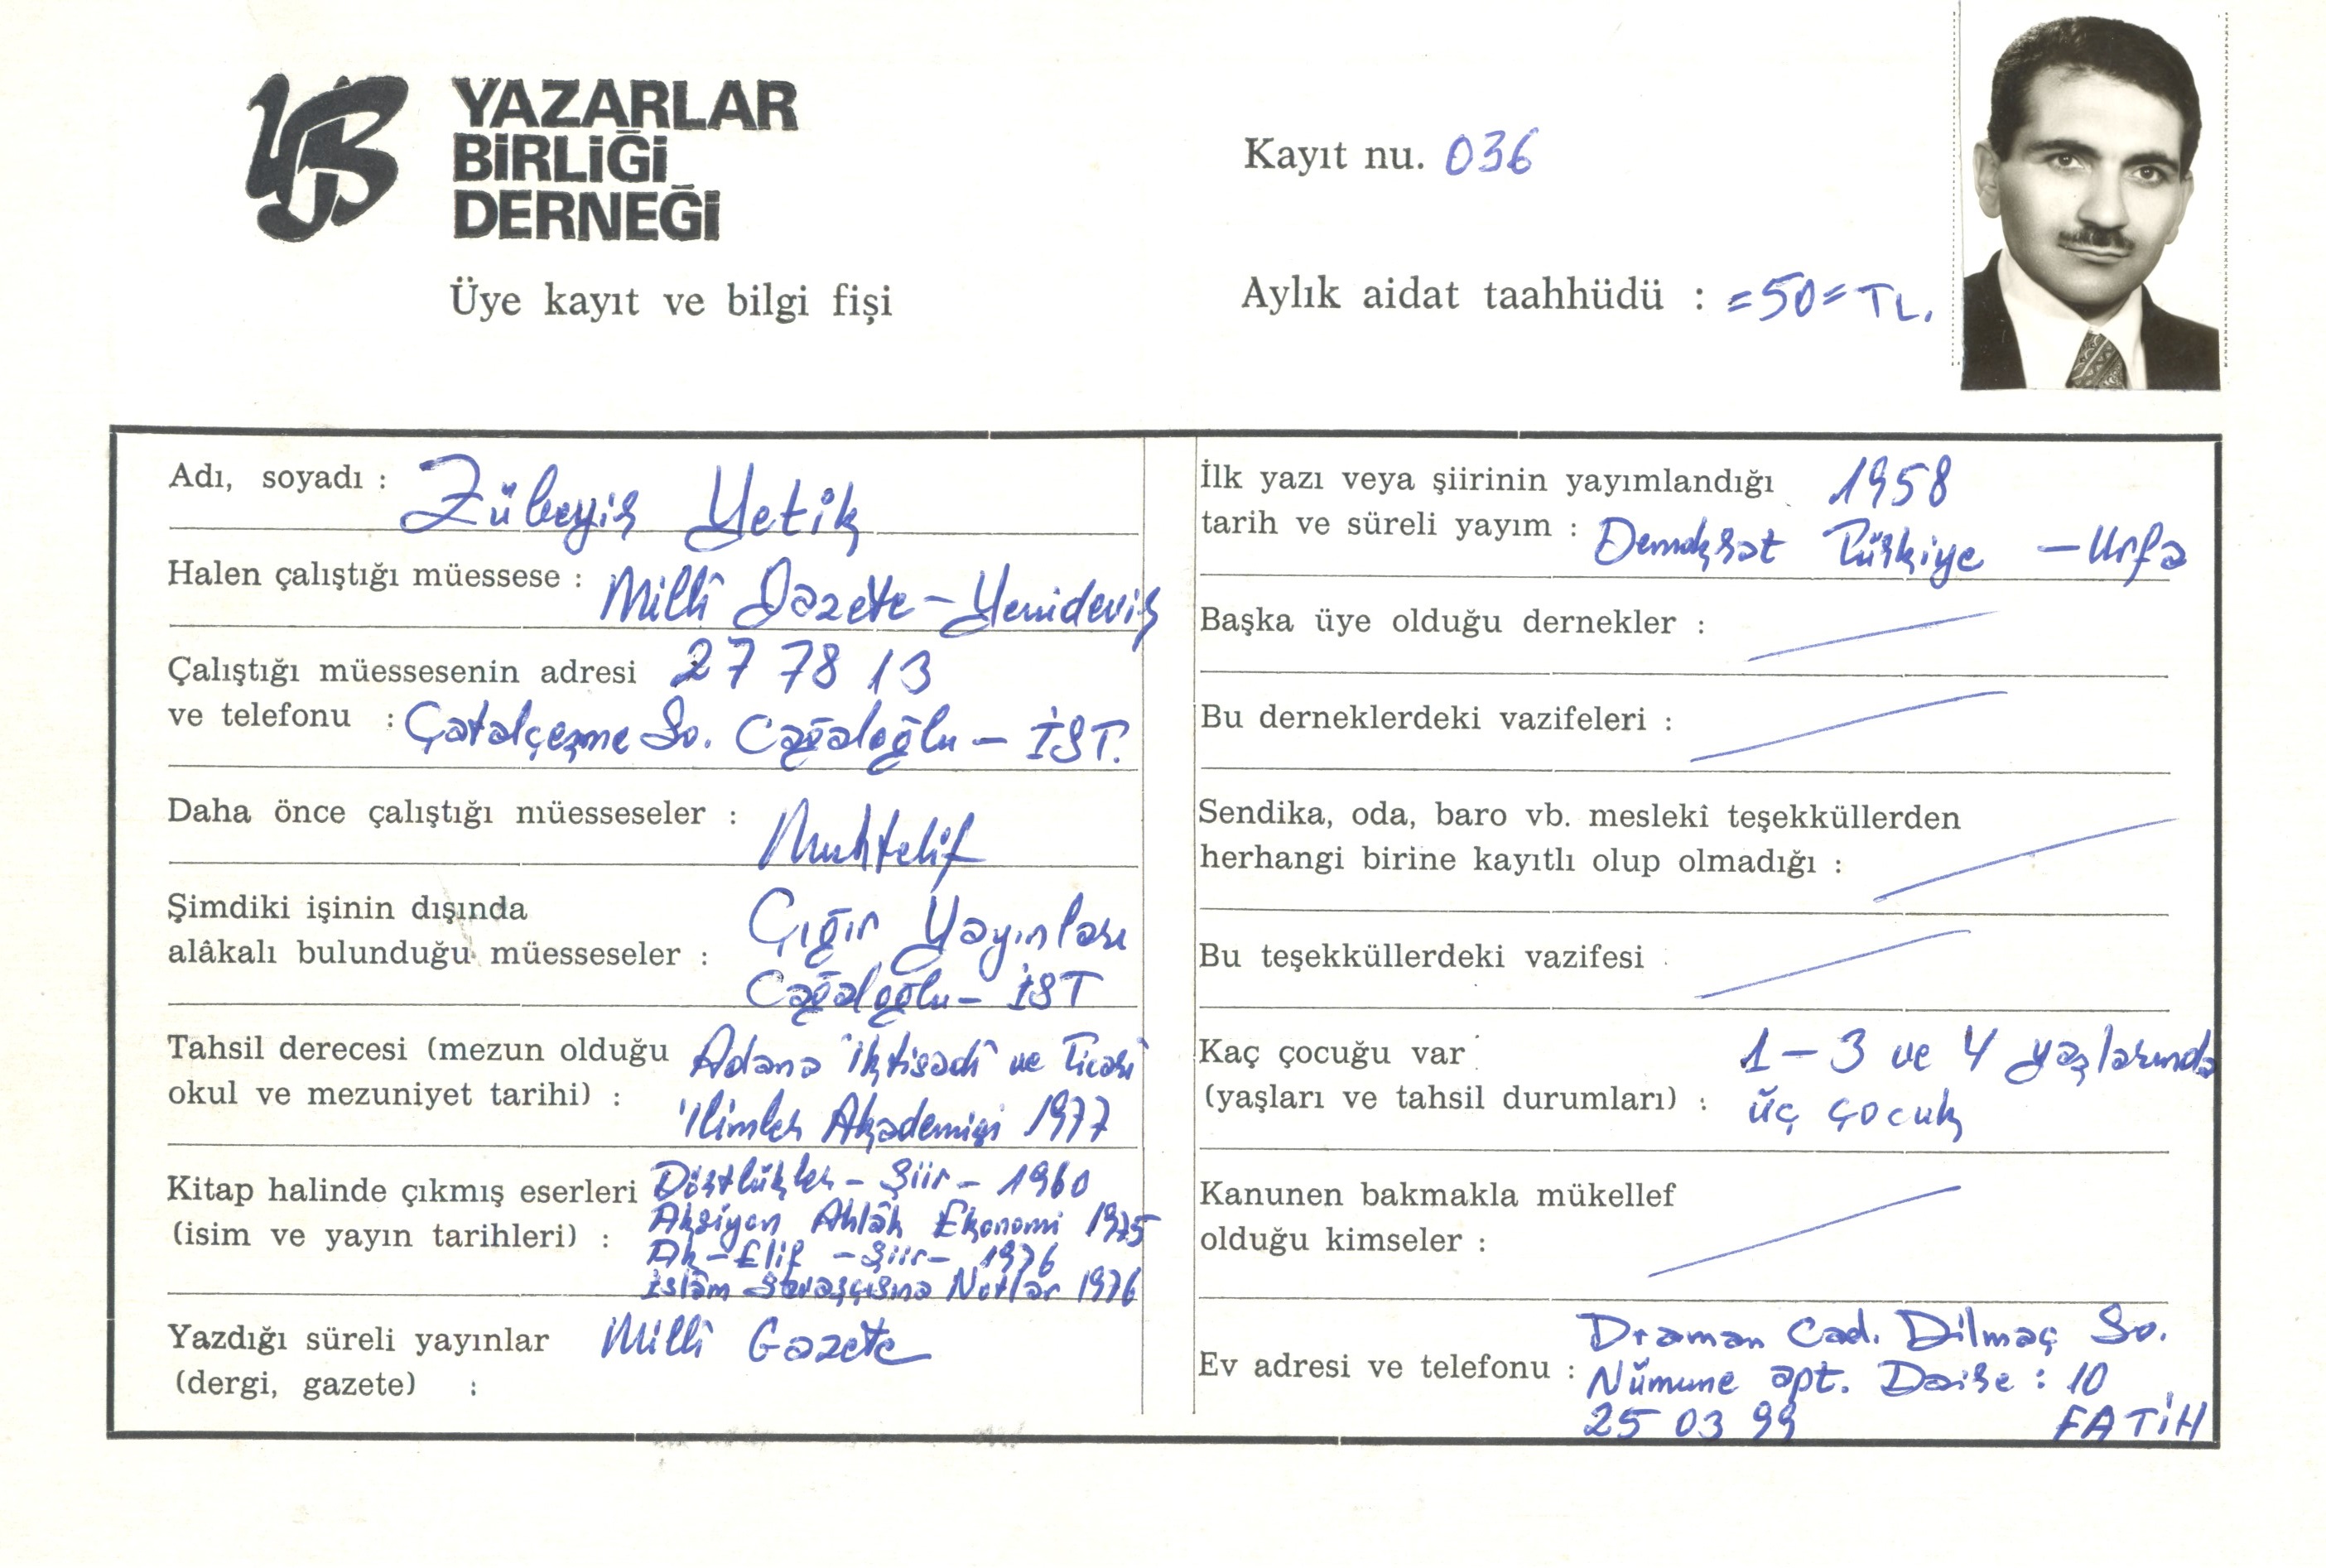 YB
YAZARLAR
BİRLİĞİ
DERNEĞİ
Üye kayıt ve bilgi fişi
Kayıt nu. 036
Aylık aidat taahhüdü : =50= TL.
Adı, soyadı : Zübeyir Yetik
Halen çalıştığı müessese : Millî Gazete - Yenidevir
Çalıştığı müessesenin adresi 27 78 13
ve telefonu : Çatalçeşme So. Cağaloğlu - İST.
Daha önce çalıştığı müesseseler : Muhtelif
Şimdiki işinin dışında Çığır Yayınları
alâkalı bulunduğu müesseseler : Cağaloğlu - İST
Tahsil derecesi (mezun olduğu Adana İktisadî ve Ticarî
okul ve mezuniyet tarihi) : İlimler Akademisi 1977
Kitap halinde çıkmış eserleri Dörtlükler - Şiir - 1960
(isim ve yayın tarihleri) : Aksiyon Ahlâk Ekonomi 1975
Ak-Elif - Şiir - 1976
İslâm Savaşçısına Notlar 1976
Yazdığı süreli yayınlar Millî Gazete
(dergi, gazete) :
İlk yazı veya şiirinin yayımlandığı 1958
tarih ve süreli yayım : Demokrat Türkiye - Urfa
Başka üye olduğu dernekler :
Bu derneklerdeki vazifeleri :
Sendika, oda, baro vb. meslekî teşekküllerden
herhangi birine kayıtlı olup olmadığı :
Bu teşekküllerdeki vazifesi :
Kaç çocuğu var 1 - 3 ve 4 yaşlarında
(yaşları ve tahsil durumları) : üç çocuk
Kanunen bakmakla mükellef
olduğu kimseler :
Draman Cad. Dilmaç So.
Ev adresi ve telefonu : Nümune apt. Daire : 10
25 03 99 FATİH